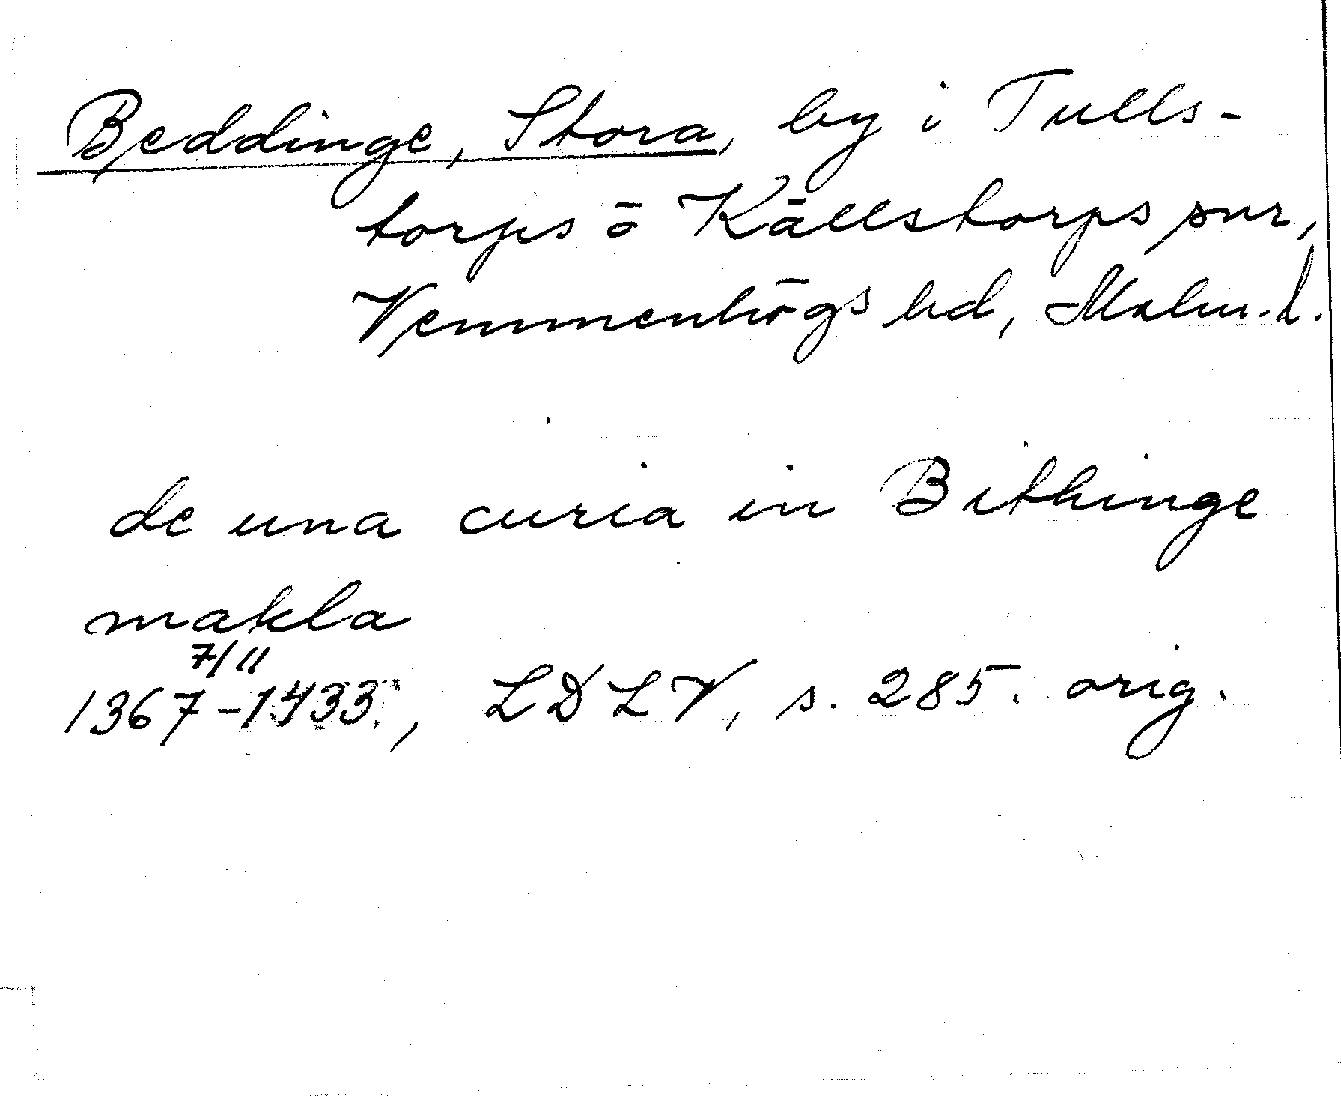 Beddinge, Stora, by i Tulls-
torps o Källstorps snr,
Vemmenhögs hd, Malm. l.
de una curia in Bithinge
makla
7/11
1367-1433, LDLV, s. 285. orig.